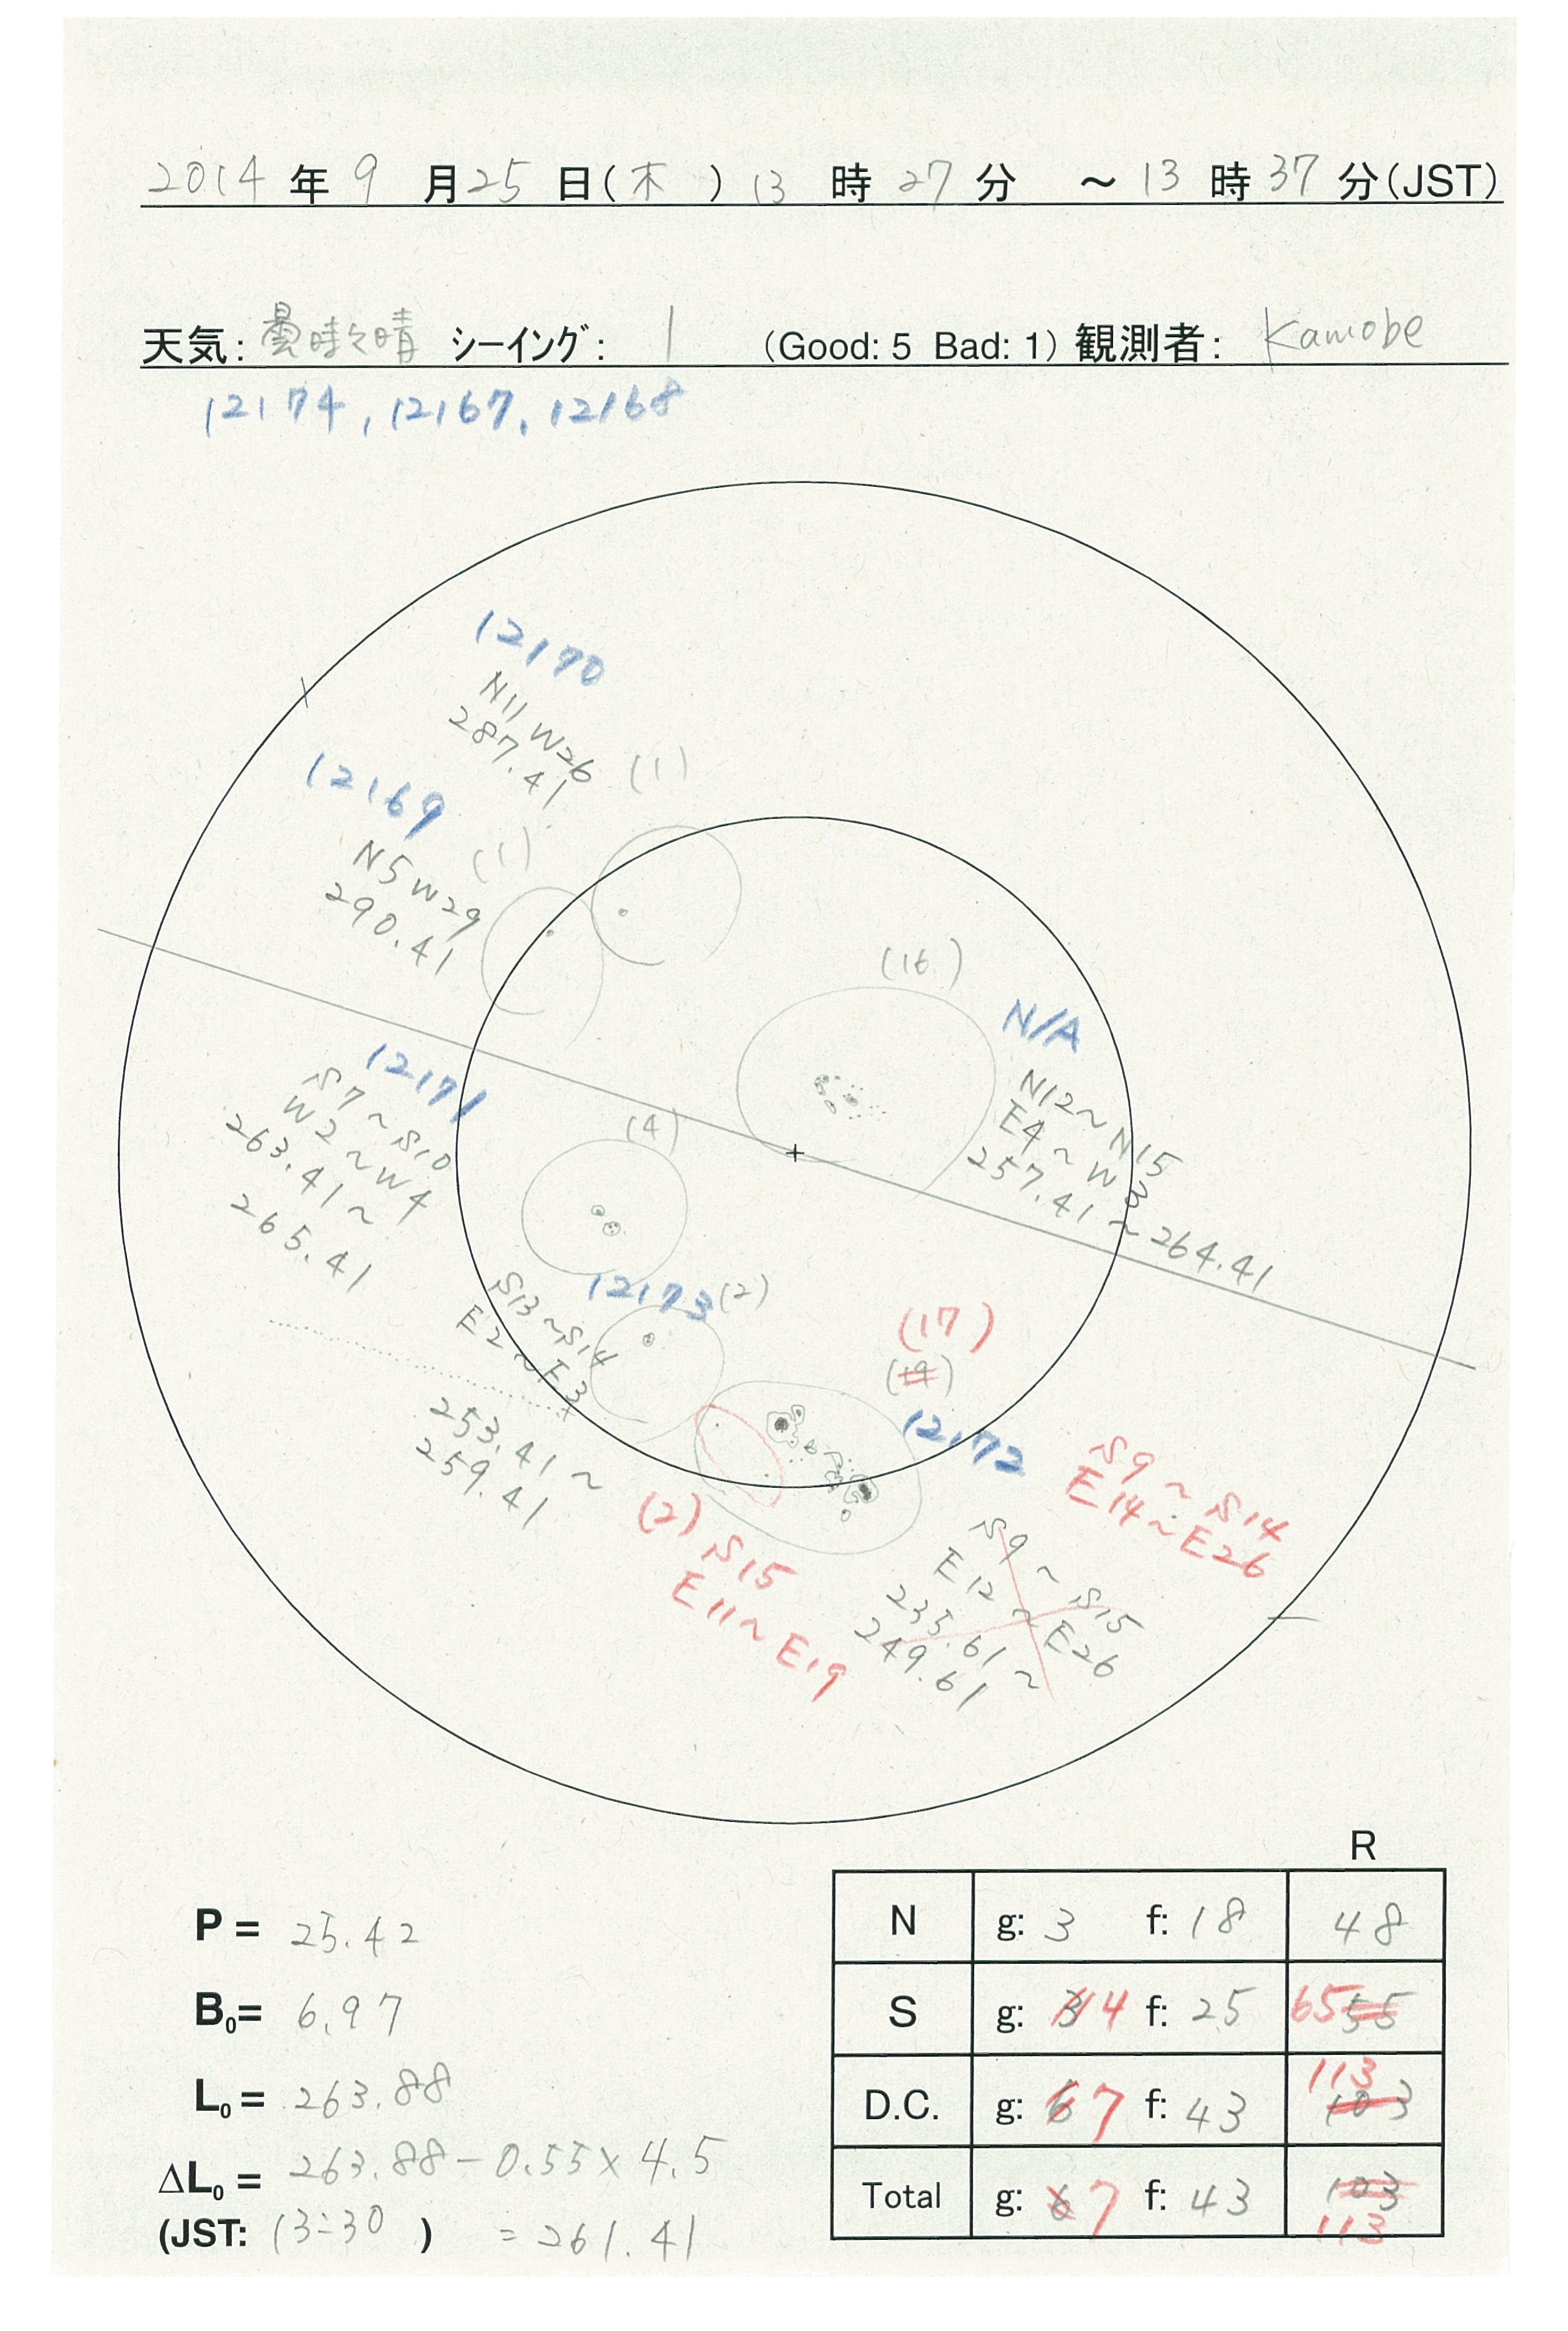 2014 年 9 月 25 日(木) 13 時 27 分 ～ 13 時 37 分(JST)
天気: 曇時々晴 ｼｰｲﾝｸﾞ: 1 (Good: 5 Bad: 1) 観測者: Kamobe
12174, 12167, 12168
12170
N11 W26
287.41
(1)
12169
(1)
N5 W29
290.41
(16)
N/A
N12～N15
E4～W3
257.41～264.41
12171
S7～S10
W2～W4
263.41～
265.41
(4)
12173
(2)
S13～S14
E2～E3
253.41～
259.41
(17)
(19)
12172
S9～S14
E14～E26
(2) S15
E11～E19
S9～S15
E12～E26
235.61～
249.61
R
P = 25.42
N g: 3 f: 18 48
B0= 6.97
S g: 3 4 f: 25 65 55
L0 = 263.88
D.C. g: 6 7 f: 43 113 103
ΔL0 = 263.88 - 0.55 × 4.5
Total g: 6 7 f: 43 103 113
(JST: 13:30 ) = 261.41